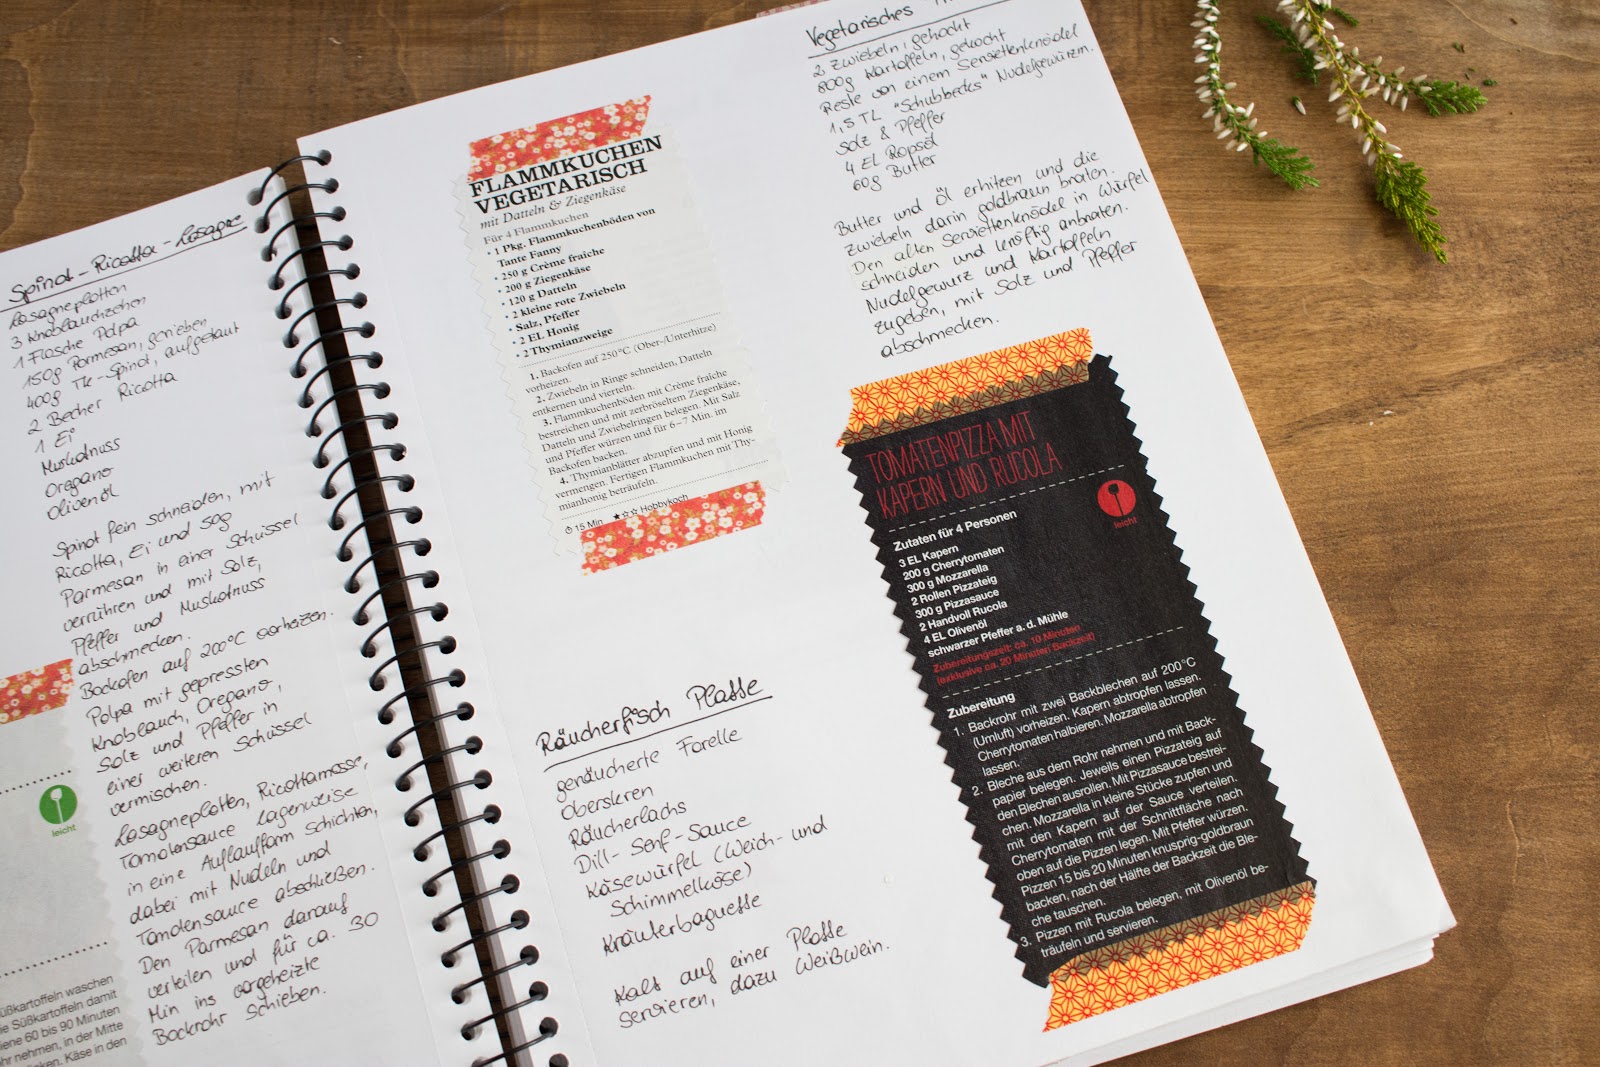 Spinat - Ricotta - Lasagne
Lasagneplatten
3 Knoblauchzehen
1 Flasche Polpa
150g Parmesan, gerieben
400g TK-Spinat, aufgetaut
2 Becher Ricotta
1 Ei
Muskatnuss
Oregano
Olivenöl
Spinat fein schneiden, mit
Ricotta, Ei und 50g
Parmesan in einer Schüssel
verrühren und mit Salz,
Pfeffer und Muskatnuss
abschmecken.
Backofen auf 200°C vorheizen.
Polpa mit gepressten
Knoblauch, Oregano,
Salz und Pfeffer in
einer weiteren Schüssel
vermischen.
Lasagneplatten, Ricottamasse,
Tomatensauce lagenweise
in eine Auflaufform schichten,
dabei mit Nudeln und
Tomatensauce abschließen.
Den Parmesan darauf
verteilen und für ca. 30
Min ins vorgeheizte
Backrohr schieben.
leicht
Süßkartoffeln waschen
ie Süßkartoffeln damit
iene 60 bis 90 Minuten
hr nehmen, in der Mitte
ken. Käse in den
FLAMMKUCHEN
VEGETARISCH
mit Datteln & Ziegenkäse
Für 4 Flammkuchen
• 1 Pkg. Flammkuchenböden von
Tante Fanny
• 250 g Crème fraîche
• 200 g Ziegenkäse
• 120 g Datteln
• 2 kleine rote Zwiebeln
• Salz, Pfeffer
• 2 EL Honig
• 2 Thymianzweige
1. Backofen auf 250°C (Ober-/Unterhitze)
vorheizen.
2. Zwiebeln in Ringe schneiden, Datteln
entkernen und vierteln.
3. Flammkuchenböden mit Crème fraîche
bestreichen und mit zerbröseltem Ziegenkäse,
Datteln und Zwiebelringen belegen. Mit Salz
und Pfeffer würzen und für 6–7 Min. im
Backofen backen.
4. Thymianblätter abzupfen und mit Honig
vermengen. Fertigen Flammkuchen mit Thy-
mianhonig beträufeln.
15 Min ★☆☆ Hobbykoch
Räucherfisch Platte
geräucherte Forelle
Oberskren
Räucherlachs
Dill-Senf-Sauce
Käsewürfel (Weich- und
Schimmelkäse)
Kräuterbaguette
Kalt auf einer Platte
servieren, dazu Weißwein.
Vegetarisches
2 Zwiebeln, gehackt
800g Kartoffeln, gekocht
Reste von einem Serviettenknödel
1,5 TL "Schubbecks" Nudelgewürzm.
Salz & Pfeffer
4 El Rapsöl
60g Butter
Butter und Öl erhitzen und die
Zwiebeln darin goldbraun braten.
Den alten Serviettenknödel in Würfel
schneiden und kräftig anbraten.
Nudelgewürz und Kartoffeln
zugeben, mit Salz und Pfeffer
abschmecken.
TOMATENPIZZA MIT
KAPERN UND RUCOLA
leicht
Zutaten für 4 Personen
3 EL Kapern
200 g Cherrytomaten
300 g Mozzarella
2 Rollen Pizzateig
300 g Pizzasauce
2 Handvoll Rucola
4 EL Olivenöl
schwarzer Pfeffer a. d. Mühle
Zubereitungszeit: ca. 10 Minuten
(exklusive ca. 20 Minuten Backzeit)
Zubereitung
1. Backrohr mit zwei Backblechen auf 200°C
(Umluft) vorheizen. Kapern abtropfen lassen.
Cherrytomaten halbieren. Mozzarella abtropfen
lassen.
2. Bleche aus dem Rohr nehmen und mit Back-
papier belegen. Jeweils einen Pizzateig auf
den Blechen ausrollen. Mit Pizzasauce bestrei-
chen. Mozzarella in kleine Stücke zupfen und
mit den Kapern auf der Sauce verteilen.
Cherrytomaten mit der Schnittfläche nach
oben auf die Pizzen legen. Mit Pfeffer würzen.
Pizzen 15 bis 20 Minuten knusprig-goldbraun
backen, nach der Hälfte der Backzeit die Ble-
che tauschen.
3. Pizzen mit Rucola belegen, mit Olivenöl be-
träufeln und servieren.